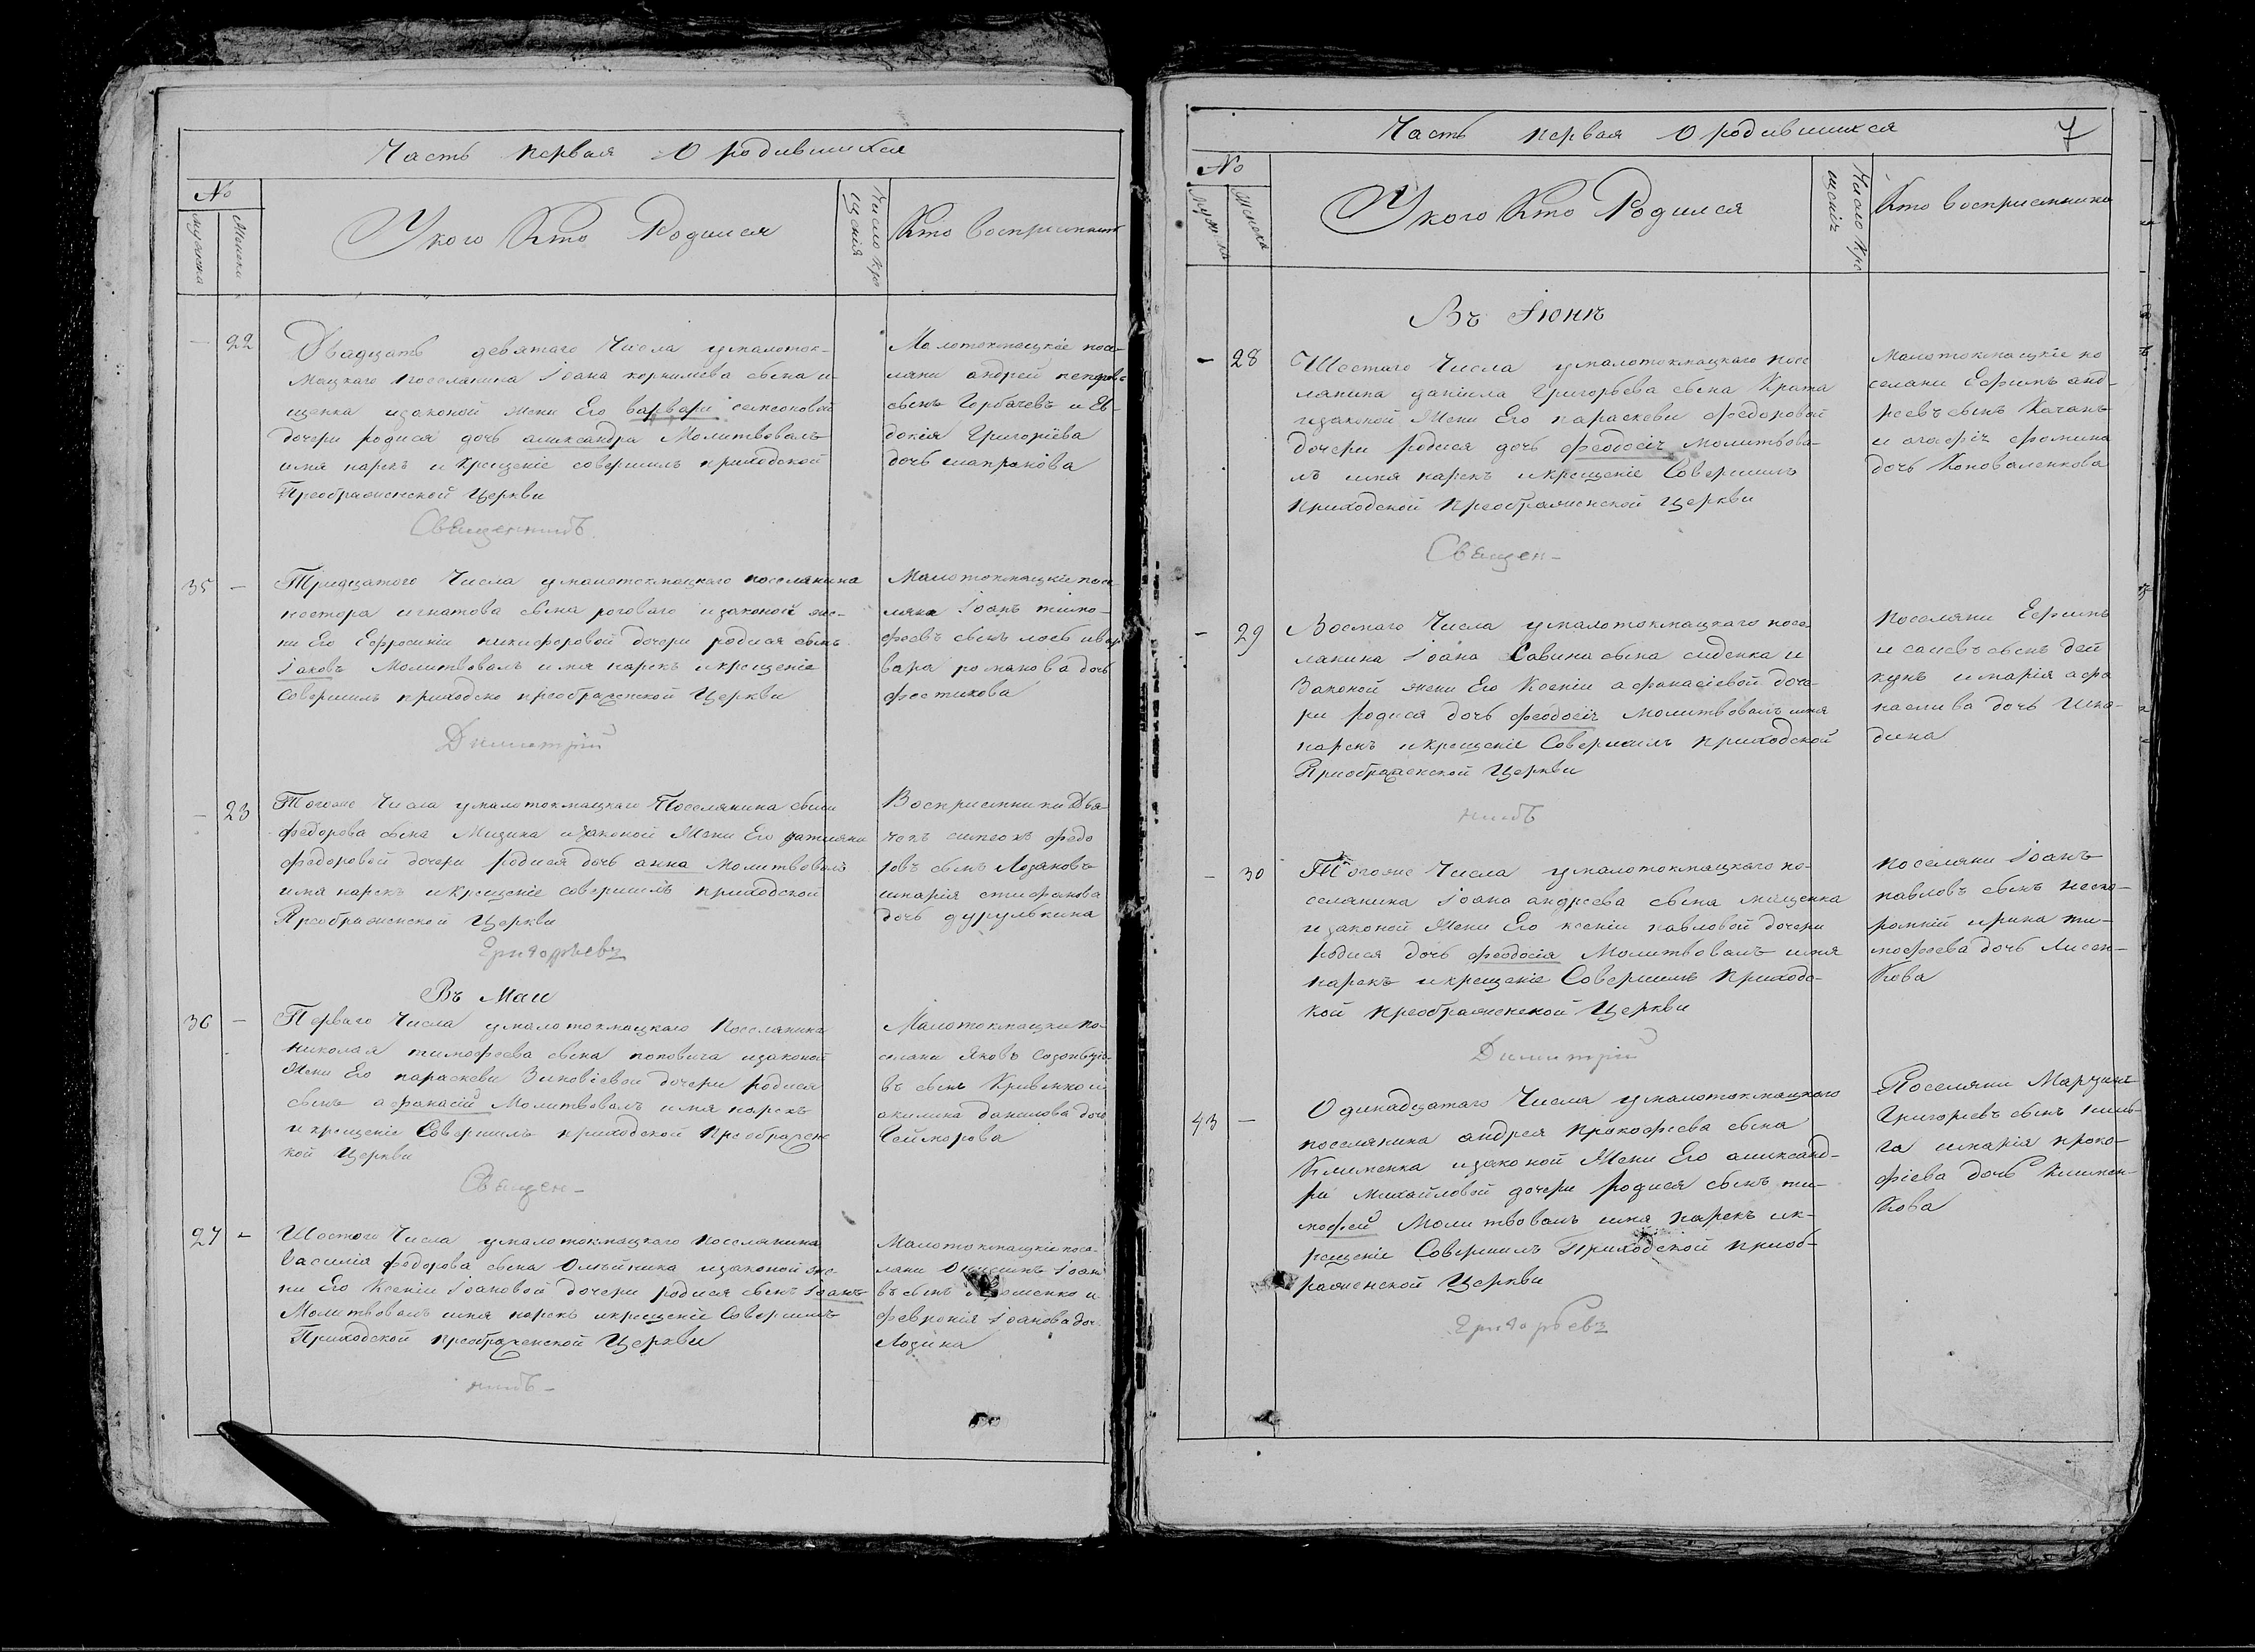 Часть первая О родившихся
№
мужеска
женска
У кого Кто Родился
Число Кре
щенія
Кто воспріемники
—
22
Двадцать девятаго Числа умалоток-
мацкаго поселянина Іоана корнилиева сына и
щенка изаконой жени Его варвари семсоновой
дочери родися дочь александра Молитвовалъ
имя нарекъ и крещеніе совершилъ приходской
Преображенской Церкви
Малотокмацкіе посе-
ляни андрей
сынъ Горбачевъ и Ев-
докія Григоріева
дочь шапранова
Священникъ
35
—
Тридцатого Числа умалотокмацкаго поселянина
нестора игнатова сына роговаго изаконой же-
ни Его Ефросиніи никифоровой дочери родися сынъ
Іаковъ Молитвовалъ имя нарекъ икрещеніе
Совершилъ приходско преображенской Церкви
Малотокмацкіе посе
ляни Іоанъ тимо-
феевъ сынъ лобъ ивар
вара романова дочь
фостикова
Димитрій
—
23
Тогоже Числа умалотокмацкаго Поселянина
федорова сына Мицика изаконой Жени Его татияни
федоровой дочери родися дочь анна Молитвовалъ
имя нарекъ икрещеніе совершилъ приходской
Преображенской Церкви
Воспріемники Дья
чокъ симеонъ федо
ровъ сынъ Лозановъ
имарія стифанова
дочь дурулькина
Григорьевъ
Въ Маи
36
—
Перваго Числа умалотокмацкаго Поселянина
николая тимофеева сына поповича изаконой
Жени Его параскеви Зиновіевой дочери родися
сынъ афанасій Молитвовалъ имя нарекъ
и крещеніе Совершилъ приходской Преображенс
кой Церкви
Малотокмацки по-
селяни Яковъ
въ сынъ Кривенко и
акилина данилова дочь
Чейморова
Священ-
27
—
Шостого Числа умалотокмацкаго поселянина
Василія федорова сына Олейника изаконой же-
ни Его Ксеніи Іоановой дочери родися сынъ Іоанъ
Молитвовалъ имя нарекъ икрещеніе Совершилъ
Приходской преображенской Церкви
Малотокмацкіе посе-
ляни Онисимъ Іоан
въ сынъ и
февронія Іоанова доч
Лозина
никъ-
Часть первая О родившихся
7
№
мужеска
женска
У кого Кто Родился
Число Кре
щеніе
Кто воспріемники
Въ Іюнѣ
—
28
Шостаго Числа умалотокмацкаго посе
лянина даніила Григорьева сына Крата
изаконой Жени Его параскеви федоровой
дочери родися дочь феодосія молитвова-
лъ имя нарекъ икрещеніе Совершилъ
приходской преображенской Церкви
Малотокмацкіе по
селани Ефимъ анд-
реевъ сынъ Качанъ
и агафія фомина
дочь Коноваленкова
Священ-
—
29
Восмаго Числа умалотокмацкаго посе-
лянина Іоана Савина сына сиденка и
Законой жени Его Ксеніи афанасіевой доче-
ри родися дочь феодосія молитвовалъ имя
нарекъ икрещеніе Совершилъ приходской
Приображенской Церкви
Поселяни Ефимъ
исаевъ сынъ дей
кунъ имарія афа
насиива дочь Шко-
дина
никъ
—
30
Тогоже Числа умалотокмацкаго по-
селянина Іоана андреева сына мащенка
изаконой Жени Его ксеніи павловой дочери
родися дочь феодосія Молитвовалъ имя
нарекъ икрещеніе Совершилъ Приходс-
кой преображенской Церкви
Поселяни Іоанъ
павловъ сынъ неско-
ромній ирина ти-
мофеева дочь Лисен-
кова
Димитрій
43
—
Одинадцатаго Числа умалотокмацкаго
поселянина андрея прокофіева сына
Клименка изаконой Жени Его александ-
ри Михайловой дочери родися сынъ ти-
мофей Молитвовалъ имя нарекъ ик-
рещеніе Совершилъ Приходской приоб-
раженской Церкви
Поселяни Марчинъ
Григоріевъ сынъ
га имарія проко-
фіева дочь Климен-
кова
Григорьевъ